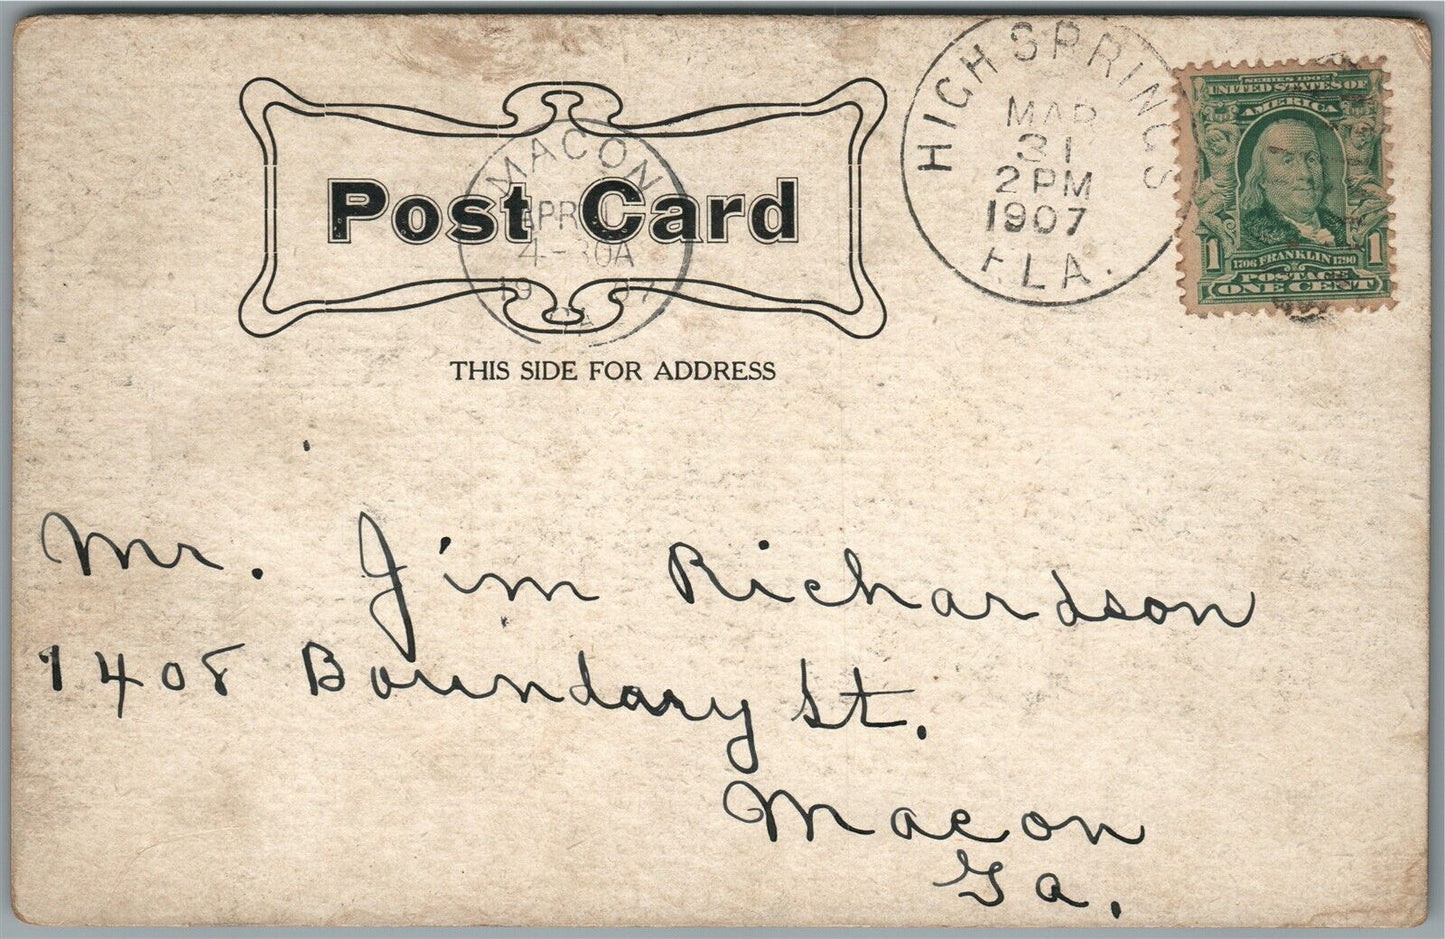 HIGH SPRINGS
MAR
31
2 PM
1907
FLA.
SERIES 1902
UNITED STATES OF
AMERICA
1 1
1706 FRANKLIN 1790
POSTAGE
ONE CENT
MACON
APR
4-30A
19
Post Card
THIS SIDE FOR ADDRESS
Mr. Jim Richardson
1408 Boundary St.
Macon
Ga.